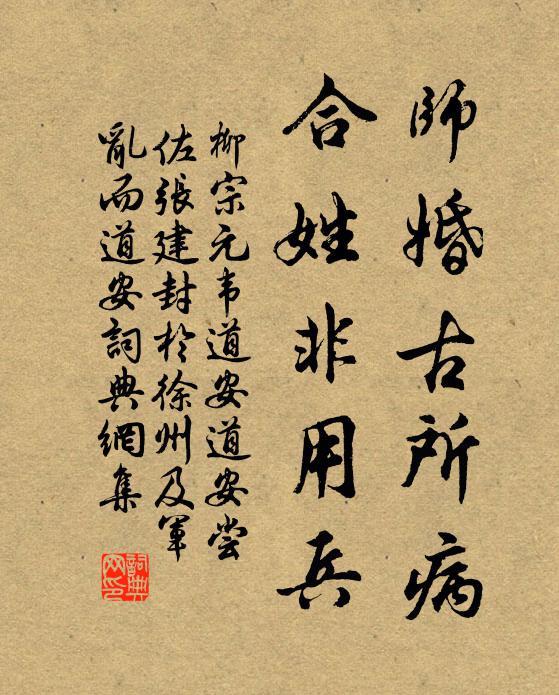 師婚古所病
合姓非用兵
柳宗元韦道安道安尝
佐張建封於徐州及军
亂而道安詞典網集
詞典网印